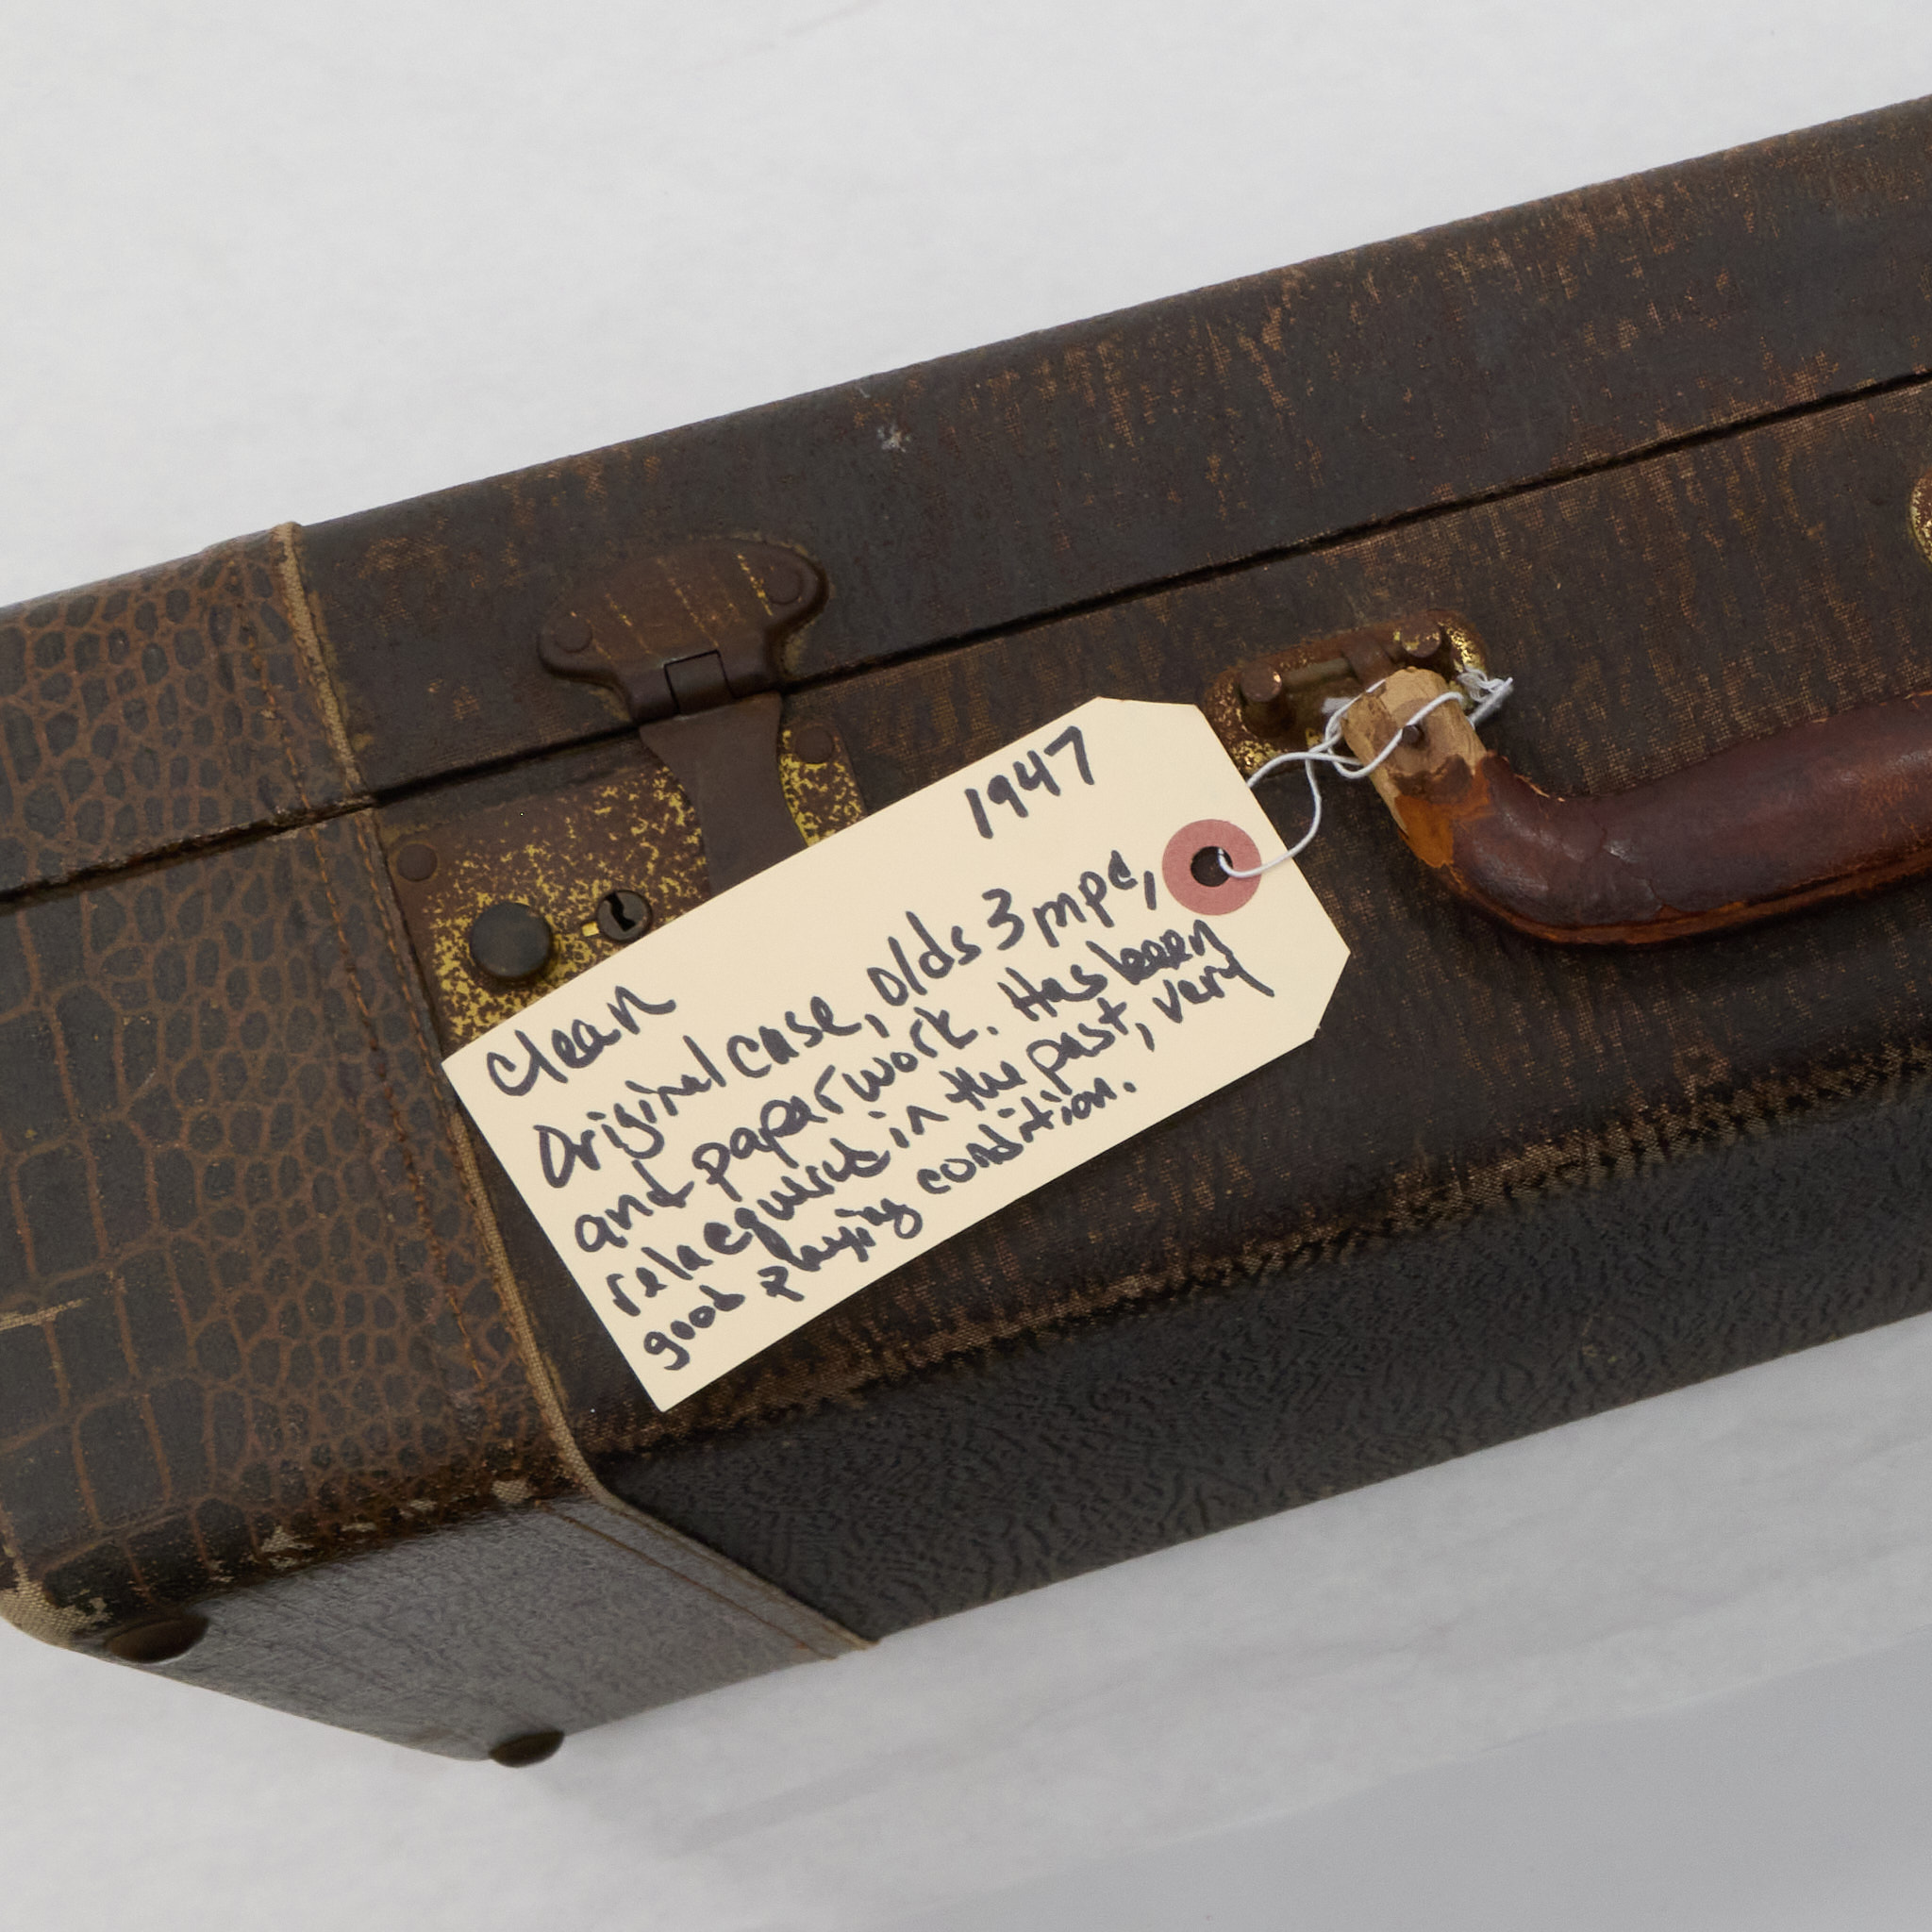 1947
clean
Original case, olds 3 mpc,
and paperwork. Has been
relacquired in the past, very
good playing condition.